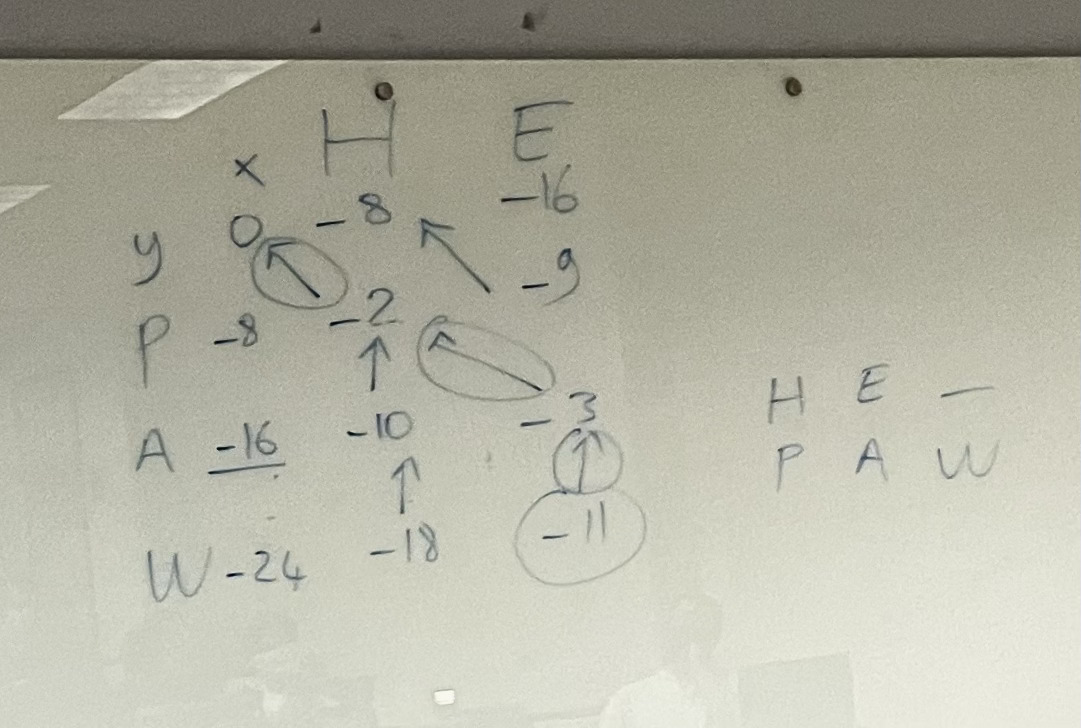 x H E
y 0 -8 -16
P -8 -2 -9
A -16 -10 -3
W -24 -18 -11
H E —
P A W